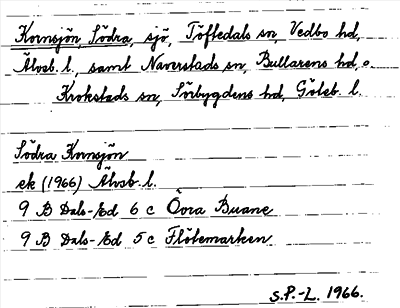 Kornsjön, Södra, sjö, Töftedals sn, Vedbo hd,
Älvsb. l., samt Naverstads sn, Bullarens hd, o
Krokstads sn, Sörbygdens hd, Göteb. l.
Södra Kornsjön
ek (1966) Älvsb. l.
9 B Dals-Ed 6 c Övra Buane
9 B Dals-Ed 5 c Flötemarken
S.P.-L. 1966.